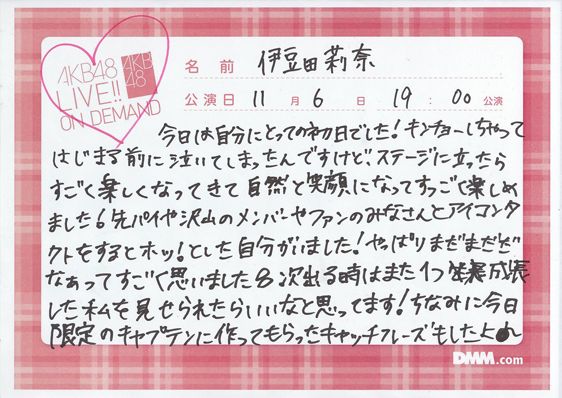 AKB48
LIVE!!
ON DEMAND
AKB
48
名前 伊豆田莉奈
公演日 11月6日 19:00公演
今日は自分にとっての初日でした!キンチョーしちゃって
はじまる前に泣いてしまったんですけど、ステージに立ったら
すごく楽しくなってきて自然と笑顔になってすっごく楽しめ
ました6先パイや沢山のメンバーやファンのみなさんとアイコンタ
クトをするとホッ!とした自分がいました!やっぱりまだまだだ
なあってすごく思いました8次出る時はまた1つ成長
した私を見せられたらいいなと思ってます!ちなみに今日
限定のキャプテンに作ってもらったキャッチフレーズもしたよ
DMM.com